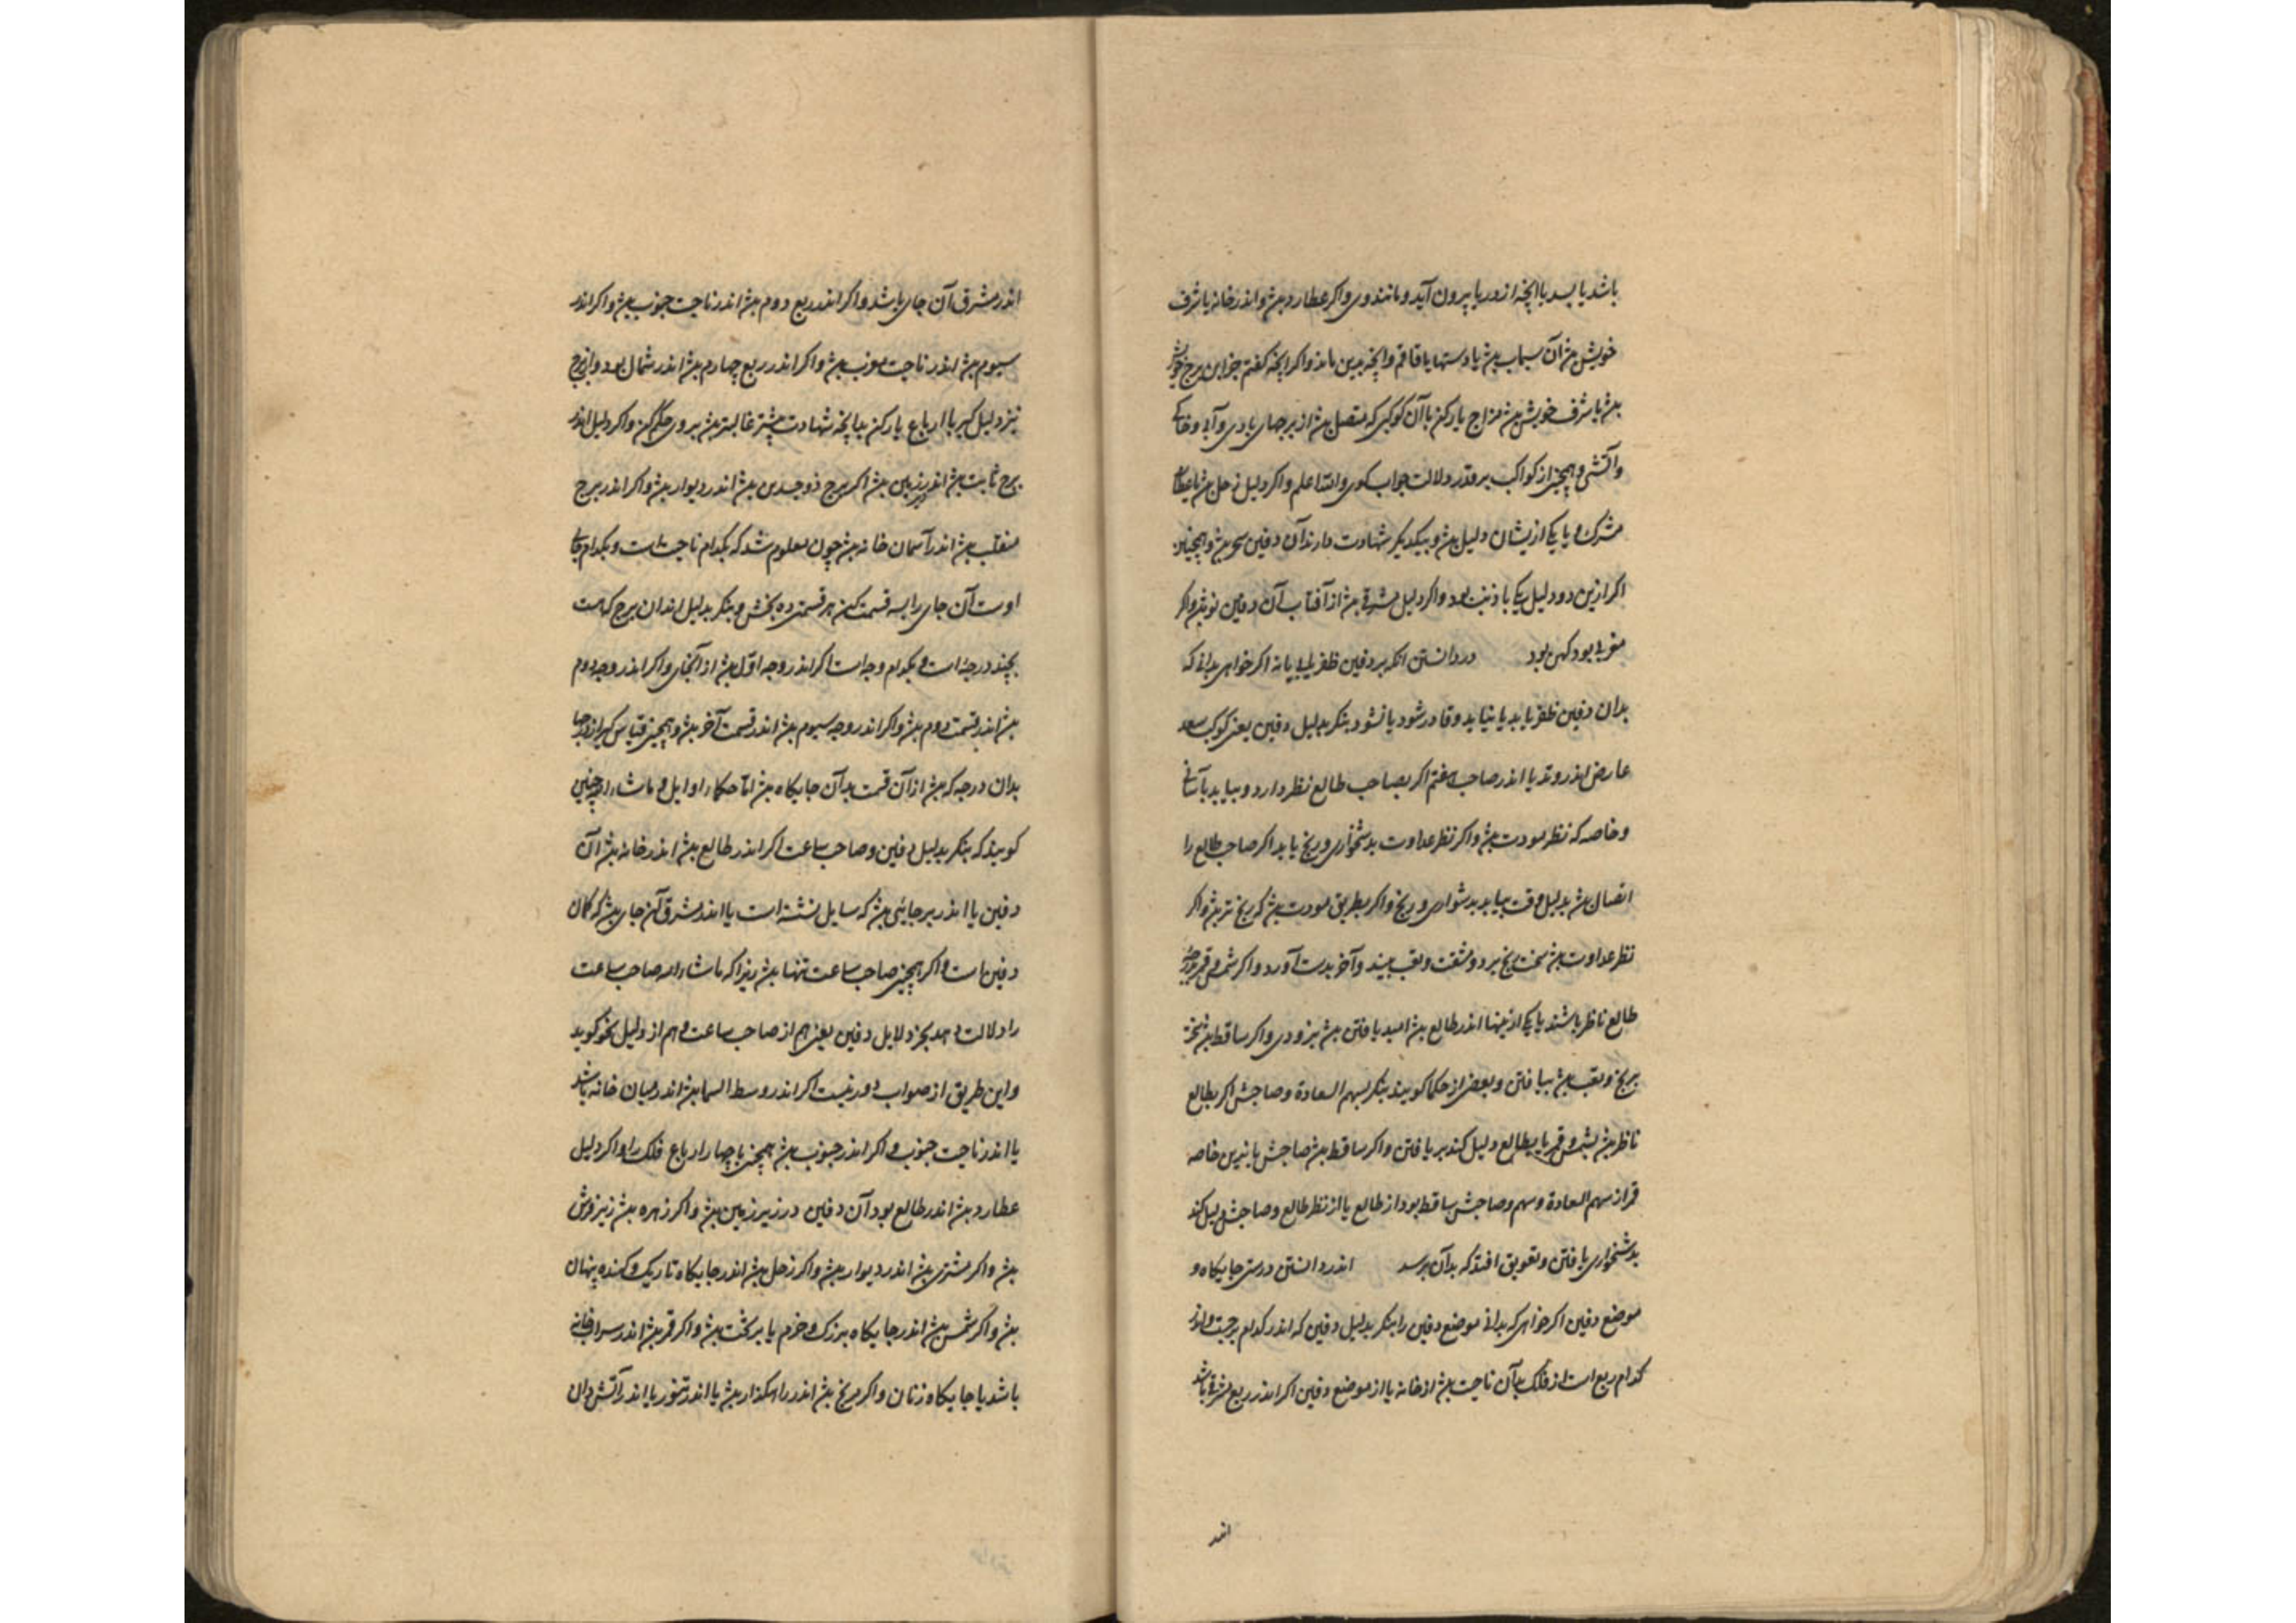 باشد یا بسد یا آنچه از دریا بیرون آید و مانند وی و اکر عطارد بود و اندر خانه یا شرف
خویش بود آن سیماب بود یا دستها یا قاقم و آنچه بدین ماند و اکر آنچه کفتم جز این برج خویش
بود یا شرف خویش بود مزاج یاد کن با آن کوکبی که متصل بود از برجهای بادی و آبی و خاکی
و آتشی و همچنین از کواکب بر قدر دلالت جواب کوی والله اعلم و اکر دلیل زحل بود یا عطارد
مشترک و یا یکی ازیشان دلیل بود و بیکدیگر شهادت دارند آن دفین بود و همچنین
اکر ازین دو دلیل یکی با ذنب بود و اکر دلیل مشرقی بود از آفتاب آن دفین نو بود و اکر
مغربی بود کهن بود در دانستن انکه بر دفین ظفر یابد یا نه اکر خواهی بدانی که
بدان دفین ظفر یابد یا نیابد و قادر شود یا نشود بنکر بدلیل دفین یعنی کوکب سعد
عارض اندر وتد یا اندر صاحب هفتم اکر بصاحب طالع نظر دارد و بیابد بآسانی
و خاصه که نظر مودت بود و اکر نظر عداوت بدشخواری و رنج یابد اکر صاحب طالع را
اتصال بود بدلیل وقت بیابد بدشواری و رنج و اکر بطریق مودت بود کم رنج تر بود و اکر
نظر عداوت بود سخت رنج برد و مشقت و تعب بیند و آخر بدست آورد و اکر شمس و قمر بدرجه
طالع ناظر باشند یا یکی ازینها اندر طالع بود امید یافتن بود بزودی و اکر ساقط بود
برنج و تعب بود بیافتن و بعضی از حکما کویند بنکر بسهم السعادة و صاحبش اکر بطالع
ناظر بود بشمس و قمر یا بطالع دلیل کند بر یافتن و اکر ساقط بود صاحبش یا نیرین خاصه
قمر از سهم السعادة و سهم و صاحبش ساقط بود از طالع یا از نظر طالع و صاحبش دلیل کند
بدشخواری یافتن و تعویق افتد که بدان برسد اندر دانستن درستی جایکاه و
موضع دفین اکر خواهی که بدانی موضع دفین را بنکر بدلیل دفین که اندر کدام برجیست و اندر
کدام ربع است از فلک بدآن ناحیت بود از خانه یا از موضع دفین اکر اندر ربع مشرقی باشد
اندر
اندر مشرق آن جای باشد و اکر اندر ربع دوم بود اندر ناحیت جنوب بود و اکر اندر
سیوم بود اندر ناحیت مغرب بود و اکر اندر ربع چهارم بود اندر شمال بود و از برج
نیز دلیل کیر با ارباع یار کن بدآنچه شهادت بیشتر غالبتر بود بر وی حکم کن و اکر دلیل اندر
برج ثابت بود اندر زیر زمین بود اکر برج ذوجسدین بود اندر دیوار بود و اکر اندر برج
منقلب بود اندر آسمان خانه بود چون معلوم شد که بکدام ناحیت است و بکدام جای
اوست آن جای را بسه قسمت کن هر قسمتی ده بخش و بنکر بدلیل اندران برج که هست
بچند درجه است و بکدام وجه است اکر اندر وجه اول بود از آنجای و اکر اندر وجه دوم
بود اندر قسمت دوم بود و اکر اندر وجه سیوم بود اندر قسمت آخر بود و همچنین قیاس کیر از درجها
بدان درجه که بود از آن قسمت بدآن جایکاه بود اما حکماء اوایل و ماشاءالله چنین
کویند که بنکر بدلیل دفین و صاحب ساعت اکر اندر طالع بود اندر خانه بود آن
دفین یا اندر بر جایی بود که سایل نشسته است یا اندر مشرق آن جای بود که کمان
دفین است و اکر همچنین صاحب ساعت تنها بود زیرا که ماشاءالله صاحب ساعت
را دلالت دهد بجز دلایل دفین یعنی هم از صاحب ساعت و هم از دلیل سخن کوید
و این طریق از صواب دور نیست اکر اندر وسط السما بود اندر میان خانه باشد
یا اندر ناحیت جنوب و اکر اندر جنوب بود همچنین با چهار ارباع فلک را و اکر دلیل
عطارد بود اندر طالع بود آن دفین در زیر زمین بود و اکر زهره بود زیر فرش
بود و اکر مشتری بود اندر دیوار بود و اکر زحل بود اندر جایکاه تاریک و کنده پنهان
بود و اکر شمس بود اندر جایکاه بزرک و خرم یا بر تخت بود و اکر قمر بود اندر سرداب
باشد یا جایکاه زنان و اکر مریخ بود اندر راهکذار بود یا اندر تنور یا اندر آتش دان